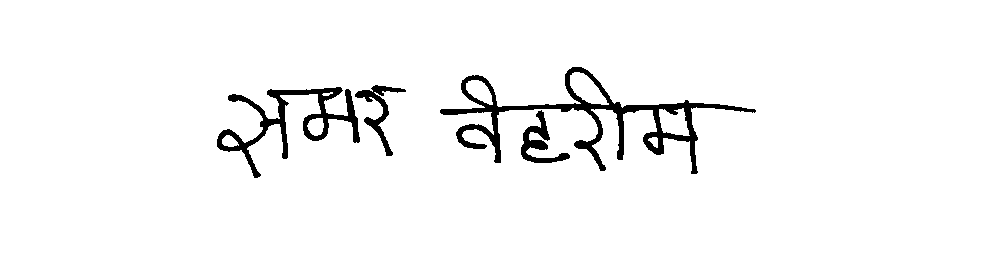 समर वेहरीम